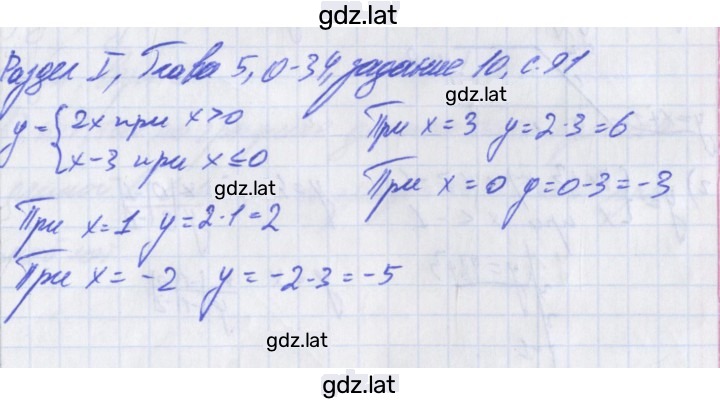 gdz.lat
Раздел I, Глава 5, О-34, задание 10, с. 91
gdz.lat
y = { 2x при x > 0
x - 3 при x ≤ 0
При x = 3 y = 2·3 = 6
gdz.lat
При x = 0 y = 0 - 3 = -3
При x = 1 y = 2·1 = 2
При x = -2 y = -2 - 3 = -5
gdz.lat
gdz.lat